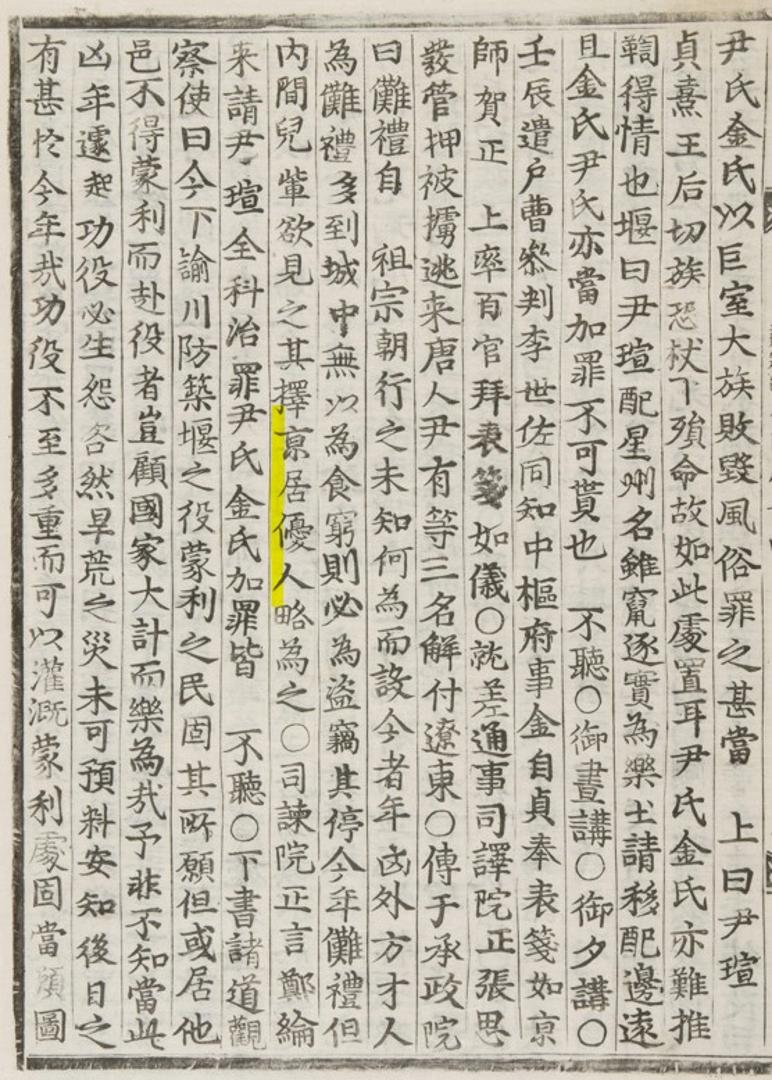 尹氏金氏以巨室大族敗毀風俗罪之甚當　上曰尹瑄
貞熹王后切族恐杖下殞命故如此處置耳尹氏金氏亦難推
鞫得情也堰曰尹瑄配星州名雖竄逐實為樂土請移配邊遠
且金氏尹氏亦當加罪不可貰也　不聽○御晝講○御夕講○
壬辰遣戶曹叅判李世佐同知中樞府事金自貞奉表箋如京
師賀正　上率百官拜表箋如儀○就差通事司譯院正張思
發管押被擄逃来唐人尹有等三名解付遼東○傳于承政院
曰儺禮自　祖宗朝行之未知何為而設今者年凶外方才人
為儺禮多到城中無以為食窮則必為盜竊其停今年儺禮但
內間兒輩欲見之其擇京居優人略為之○司諫院正言鄭綸
来請尹瑄全科治罪尹氏金氏加罪皆　不聽○下書諸道觀
察使曰今下諭川防築堰之役蒙利之民固其所願但或居他
邑不得蒙利而赴役者豈顧國家大計而樂為㢤予非不知當此
凶年遽起功役必生怨咨然旱荒之災未可預料安知後日之
有甚於今年㢤功役不至多重而可以灌漑蒙利處固當預圖